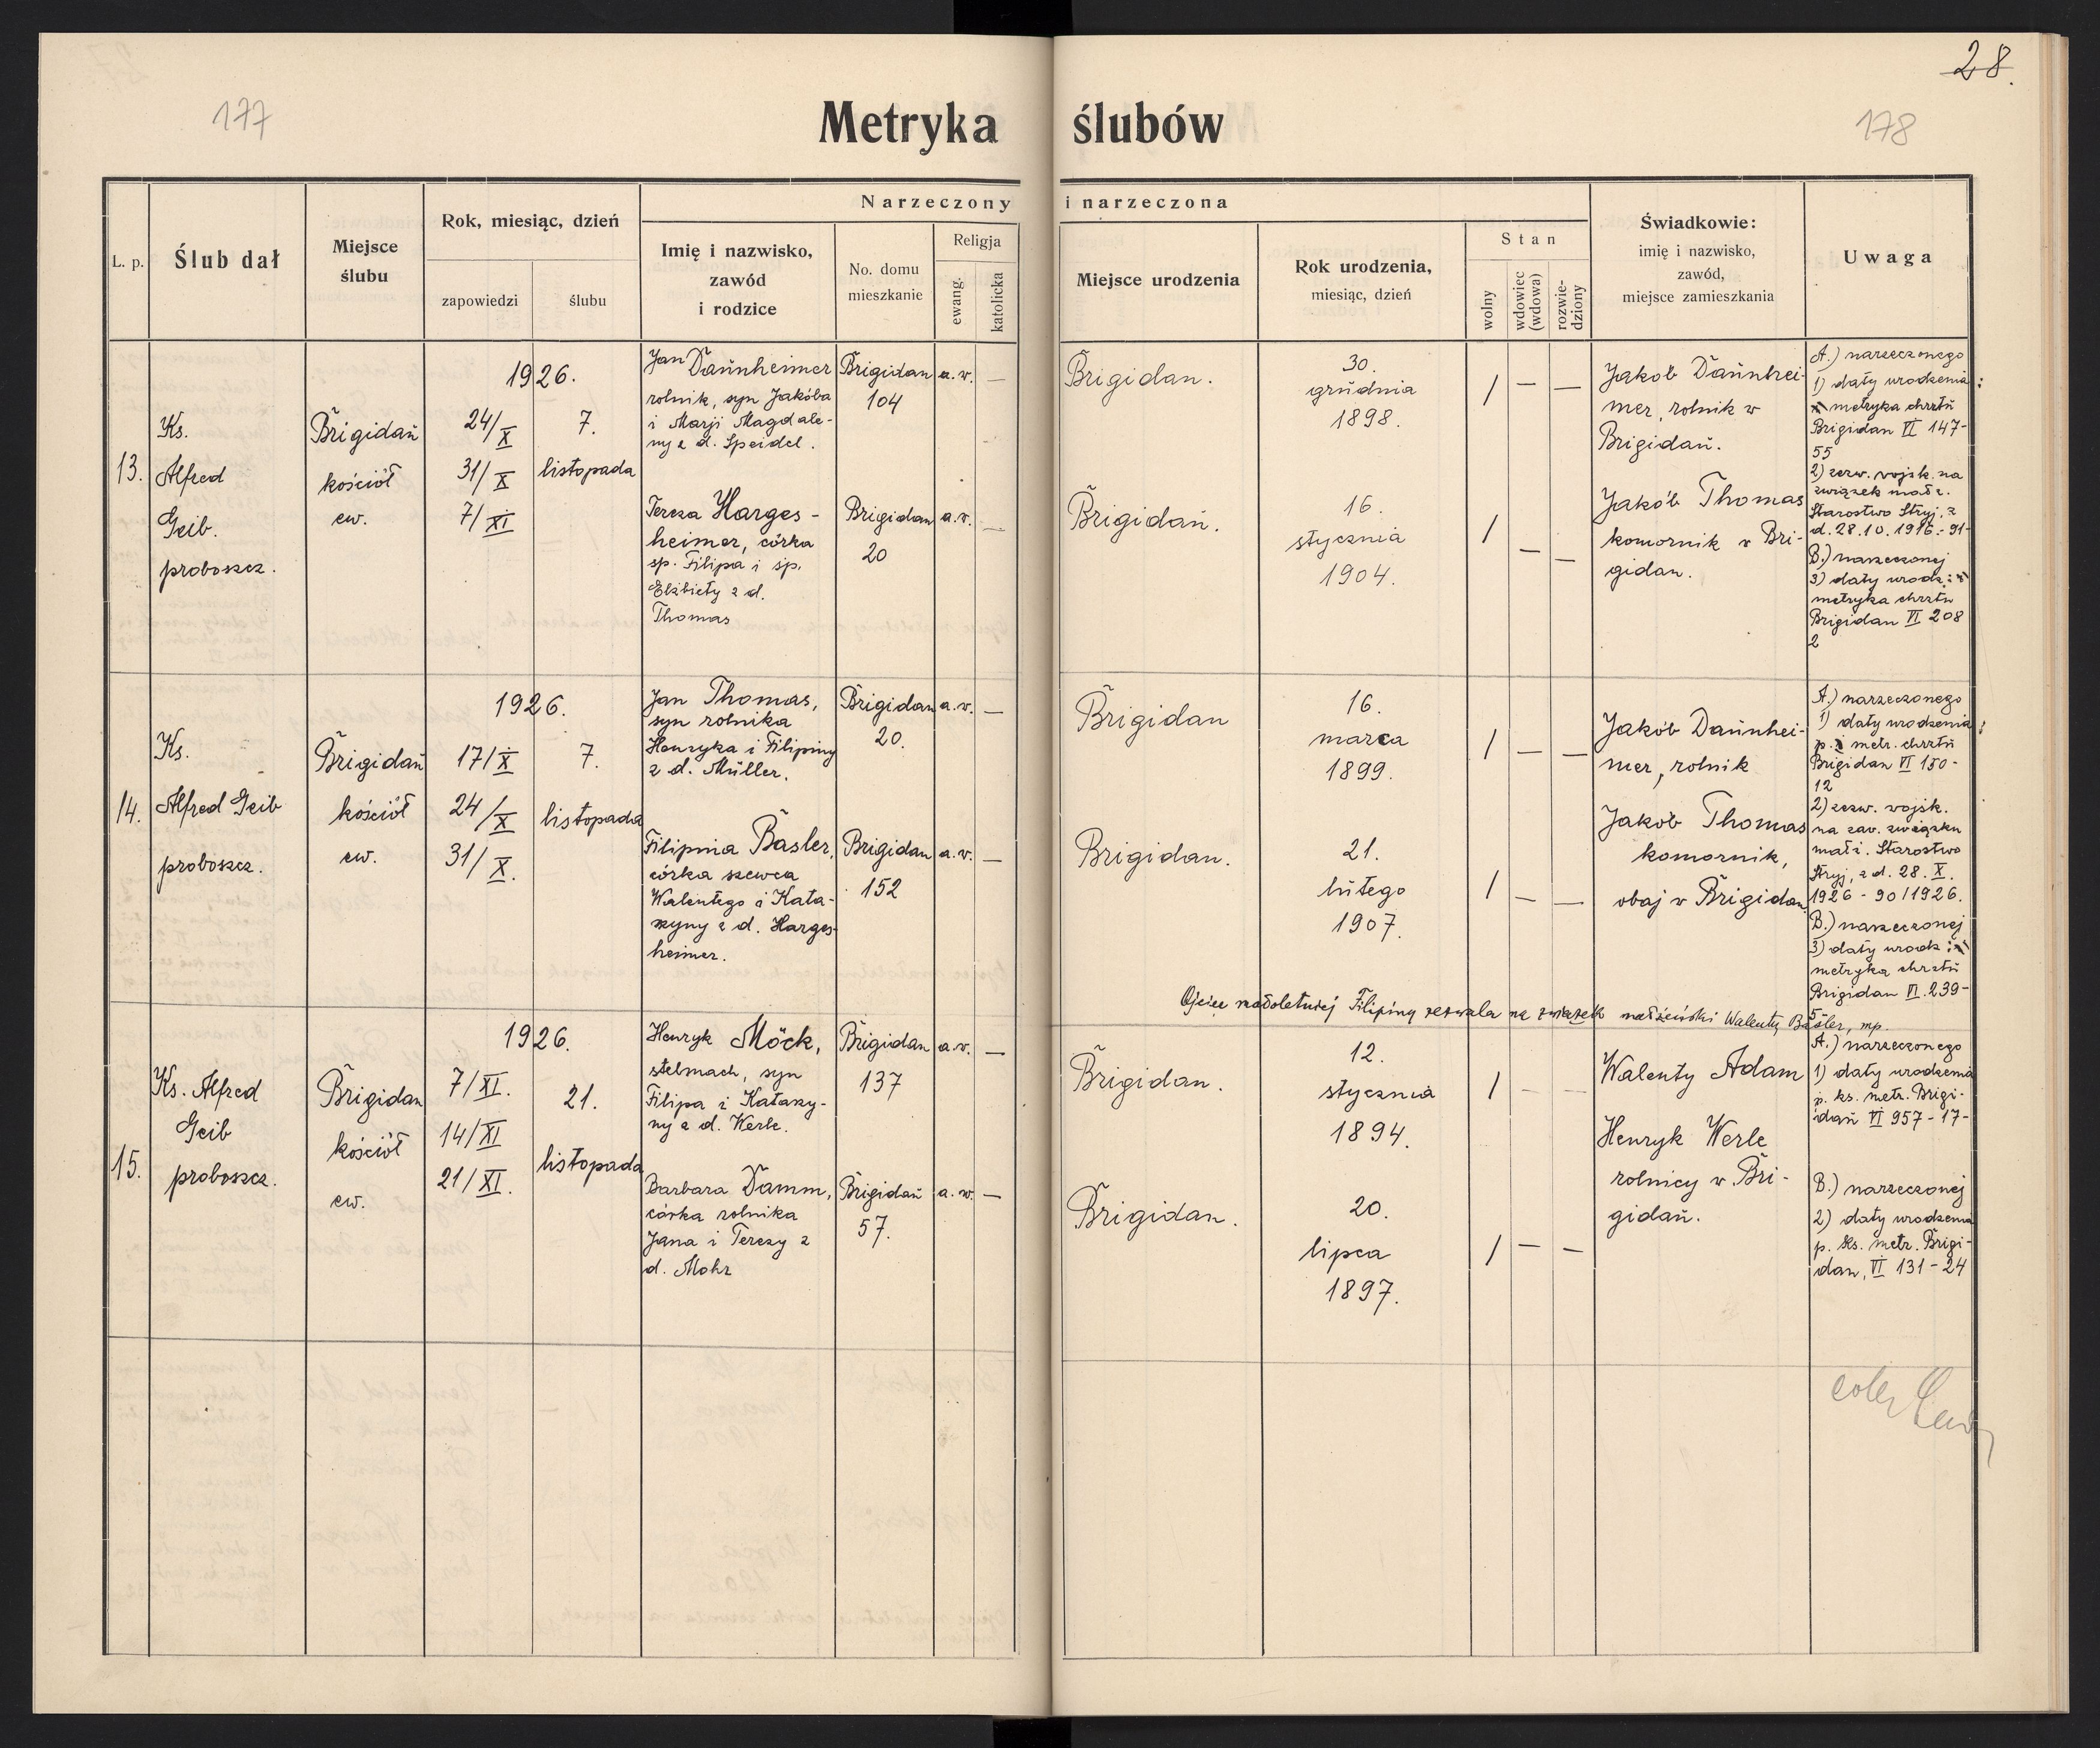 28.
177
178
Metryka ślubów
L. p.
Ślub dał
Miejsce
ślubu
Rok, miesiąc, dzień
zapowiedzi
ślubu
Narzeczony i narzeczona
Imię i nazwisko,
zawód
i rodzice
No. domu
mieszkanie
Religja
ewang.
katolicka
Miejsce urodzenia
Rok urodzenia,
miesiąc, dzień
Stan
wolny
wdowiec
(wdowa)
rozwie-
dziony
Świadkowie:
imię i nazwisko,
zawód,
miejsce zamieszkania
Uwaga
13.
Ks.
Alfred
Geib.
proboszcz.
Brigidaŭ
kościół
ew.
1926.
24/X
31/X
7/XI
7.
listopada
Jan Daŭnheimer
rolnik, syn Jakóba
i Marji Magdale-
ny z d. Speidel.
Brigidaŭ
104
a.w. —
Tereza Harges-
heimer, córka
sp. Filipa i śp.
Elżbiety z d.
Thomas
Brigidaŭ
20
a.w. —
Brigidaŭ.
30.
grŭdnia
1898.
/ — —
Brigidaŭ.
16.
stycznia
1904.
/ — —
Jakób Daŭnhei-
mer, rolnik w
Brigidaŭ.
Jakób Thomas
komornik w Bri-
gidaŭ.
A.) narzeczonego
1) daty urodzenia:
metryka chrztŭ
Brigidaŭ VI 147-
55
2) zezw. wojsk. na
związek małż.
Starostwo Stryj, z
d. 28.10.1926.-91-
B.) narzeczonej
3) daty urodz.:
metryka chrztu
Brigidaŭ VI 208
2
14.
Ks.
Alfred Geib
proboszcz.
Brigidaŭ
kościół
ew.
1926.
17/X
24/X
31/X.
7.
listopada
Jan Thomas,
syn rolnika
Henryka i Filipiny
z d. Müller.
Brigidaŭ
20.
a.w. —
Filipina Basler,
córka szewca
Walentego i Kata-
rzyny z d. Harges-
heimer.
Brigidaŭ
152
a.w. —
Brigidaŭ
16.
marca
1899.
/ — —
Brigidaŭ.
21.
lŭtego
1907.
/ — —
Jakób Daŭnhei-
mer, rolnik
Jakób Thomas
komornik,
obaj w Brigidaŭ.
A.) narzeczonego
1) daty urodzenia:
p. metr. chrztŭ
Brigidaŭ VI 150-
12
2) zezw. wojsk.
na zaw. związku
małż. Starostwo
Stryj, z d. 28. X.
1926 - 90/1926.
B.) narzeczonej
3) daty urodz:
metryka chrztŭ
Brigidaŭ VI. 239-
5
Ojciec małoletniej Filipiny zezwala na związek małżeński Walenty Basler, mp.
15.
Ks. Alfred
Geib
proboszcz.
Brigidaŭ
kościół
ew.
1926.
7/XI.
14/XI
21/XI.
21.
listopada
Henryk Möck,
stelmach, syn
Filipa i Katarzy-
ny z d. Werle.
Brigidaŭ
137
a.w. —
Barbara Damm,
córka rolnika
Jana i Terezy z
d. Mohr
Brigidaŭ
57.
a.w. —
Brigidaŭ.
12.
stycznia
1894.
/ — —
Brigidaŭ.
20.
lipca
1897.
/ — —
Walenty Adam
Henryk Werle
rolnicy w Bri-
gidaŭ.
A.) narzeczonego
1) daty urodzenia
p. ks. metr. Brigi-
daŭ VI 957-17-
B.) narzeczonej
2) daty urodzenia
p. ks. metr. Brigi-
daŭ, VI 131-24